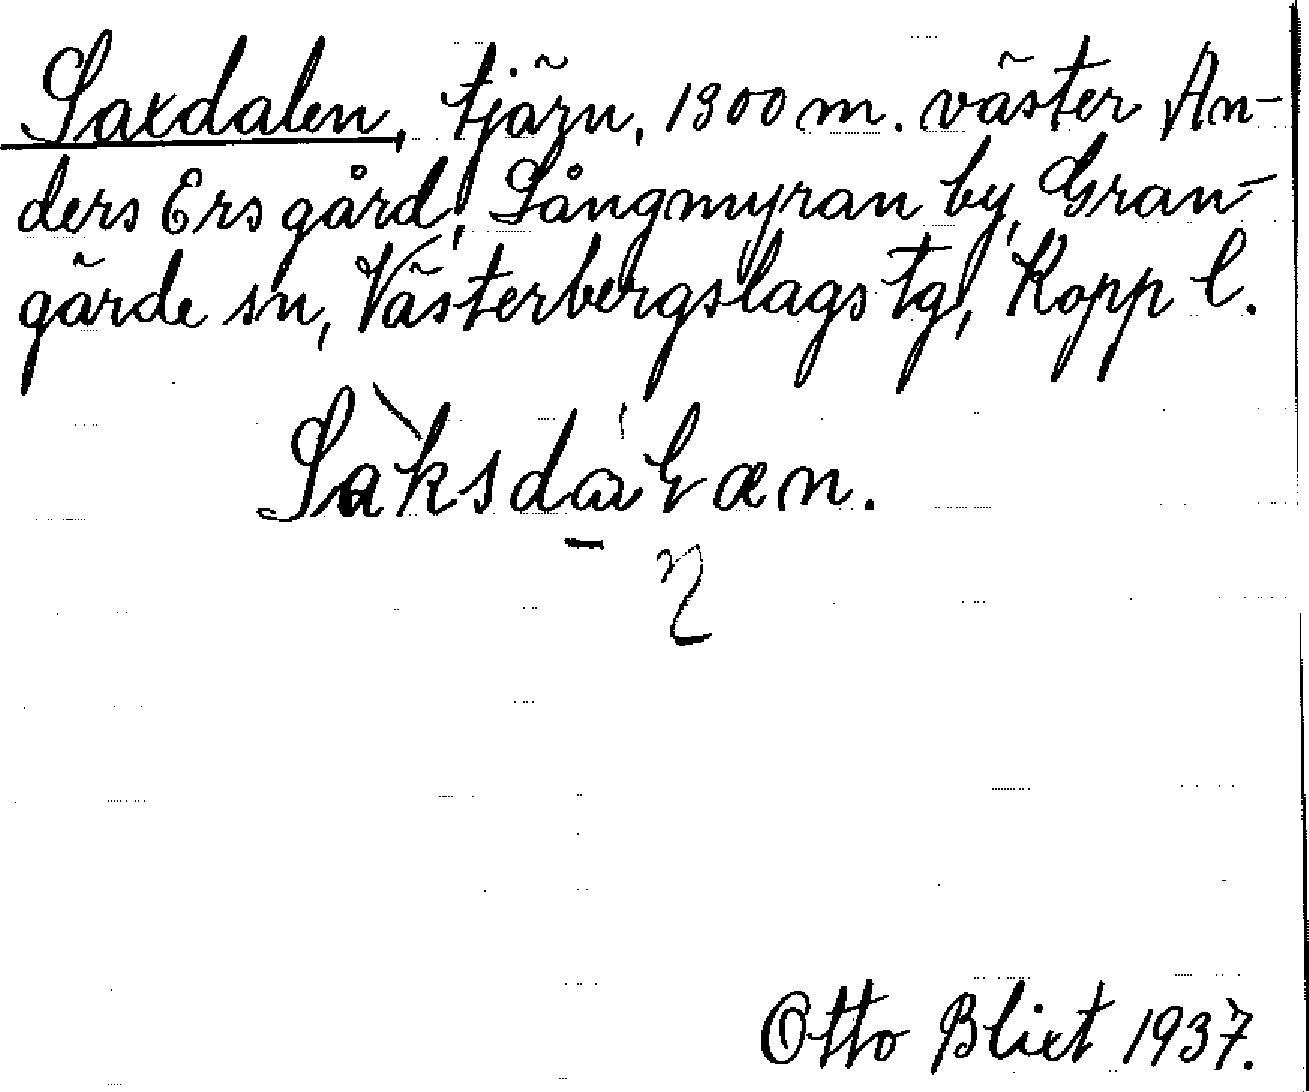 Saxdalen, tjärn, 1300 m. väster An-
ders Ers gård, Sångmyran by, Gran-
gärde sn, Västerbergslags tg, Kopp l.
Sàksdaƚæn.
Otto Blixt 1937.